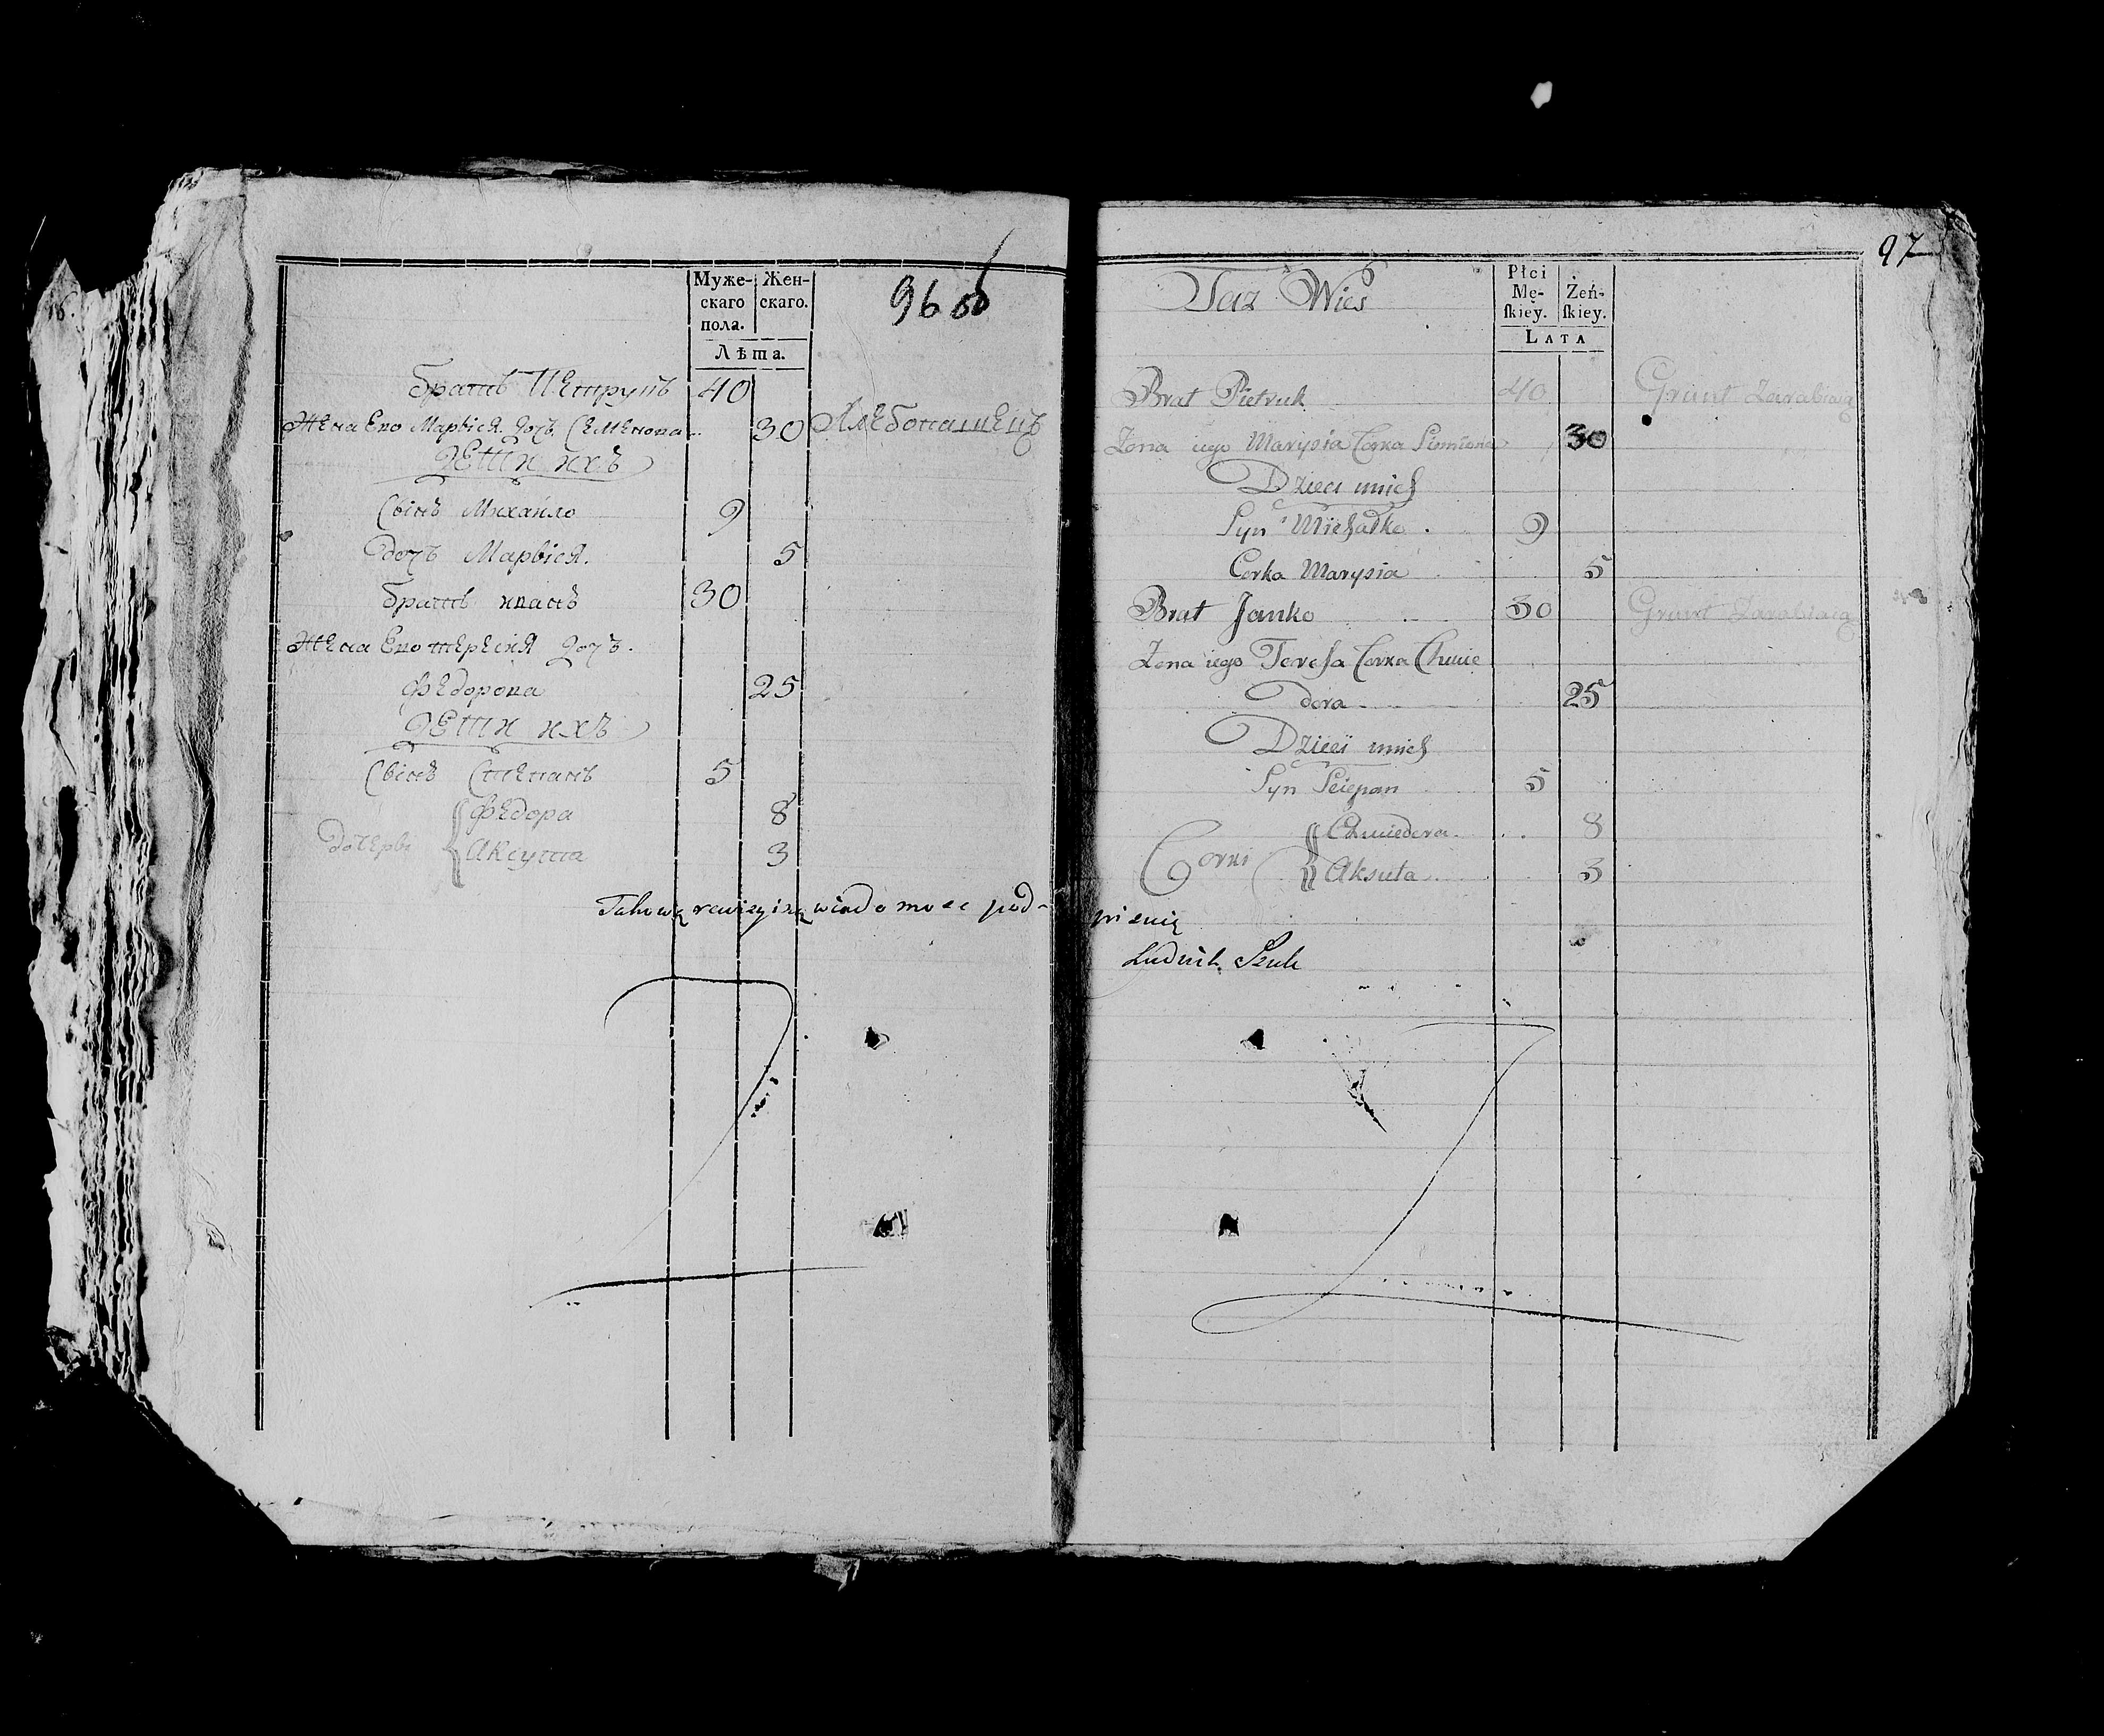 Муже-
скаго
пола.
Жен-
скаго.
Лѣта.
96 об
Братъ Петрукъ 40
Жена Его Марыся дочъ Семенова 30 Хлебопашецъ
Дети ихъ
Сынъ Михайло 9
дочъ Марыся. 5
Братъ иванъ 30
Жена Его тересия дочъ.
Федорова 25
Дети ихъ
Сынъ Степанъ 5
дочеры
Федора 8
Аксута 3
Takową rewizyiną wiadomosc pod-
97
Taz Wieś
Płci
Mę-
skiey.
Żeń-
skiey.
LATA
Brat Pietruk 40 Grunt Zarabiaią
Zona iego Marysia Corka Siemiona 30
Dzieci unich
Syn Michałko 9
Corka Marysia 5
Brat Janko 30 Grunt Zarabiaią
Zona iego Teresa Corka Chwie
dora 25
Dzieci unich
Syn Sciepan 5
Corki
Chwiedora 8
Aksuta 3
pisuię
Ludwik Szuk